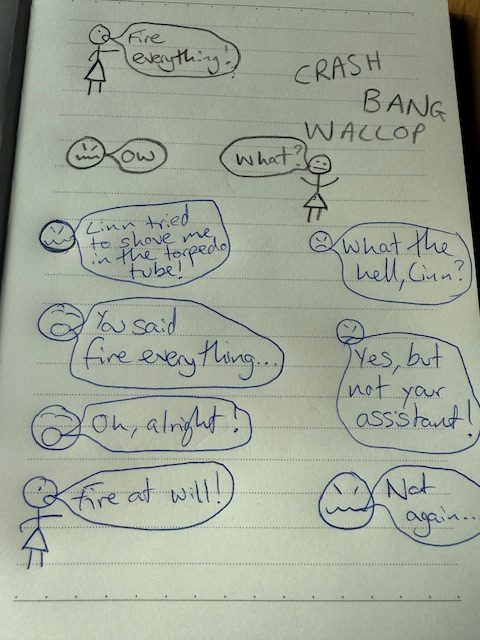 Fire
everything!
CRASH
BANG
WALLOP
OW
What?
Linn tried
to shove me
in the torpedo
tube!
What the
hell, Linn?
You said
fire everything...
Yes, but
not your
assistant!
Oh, alright!
Fire at will!
Not
again...